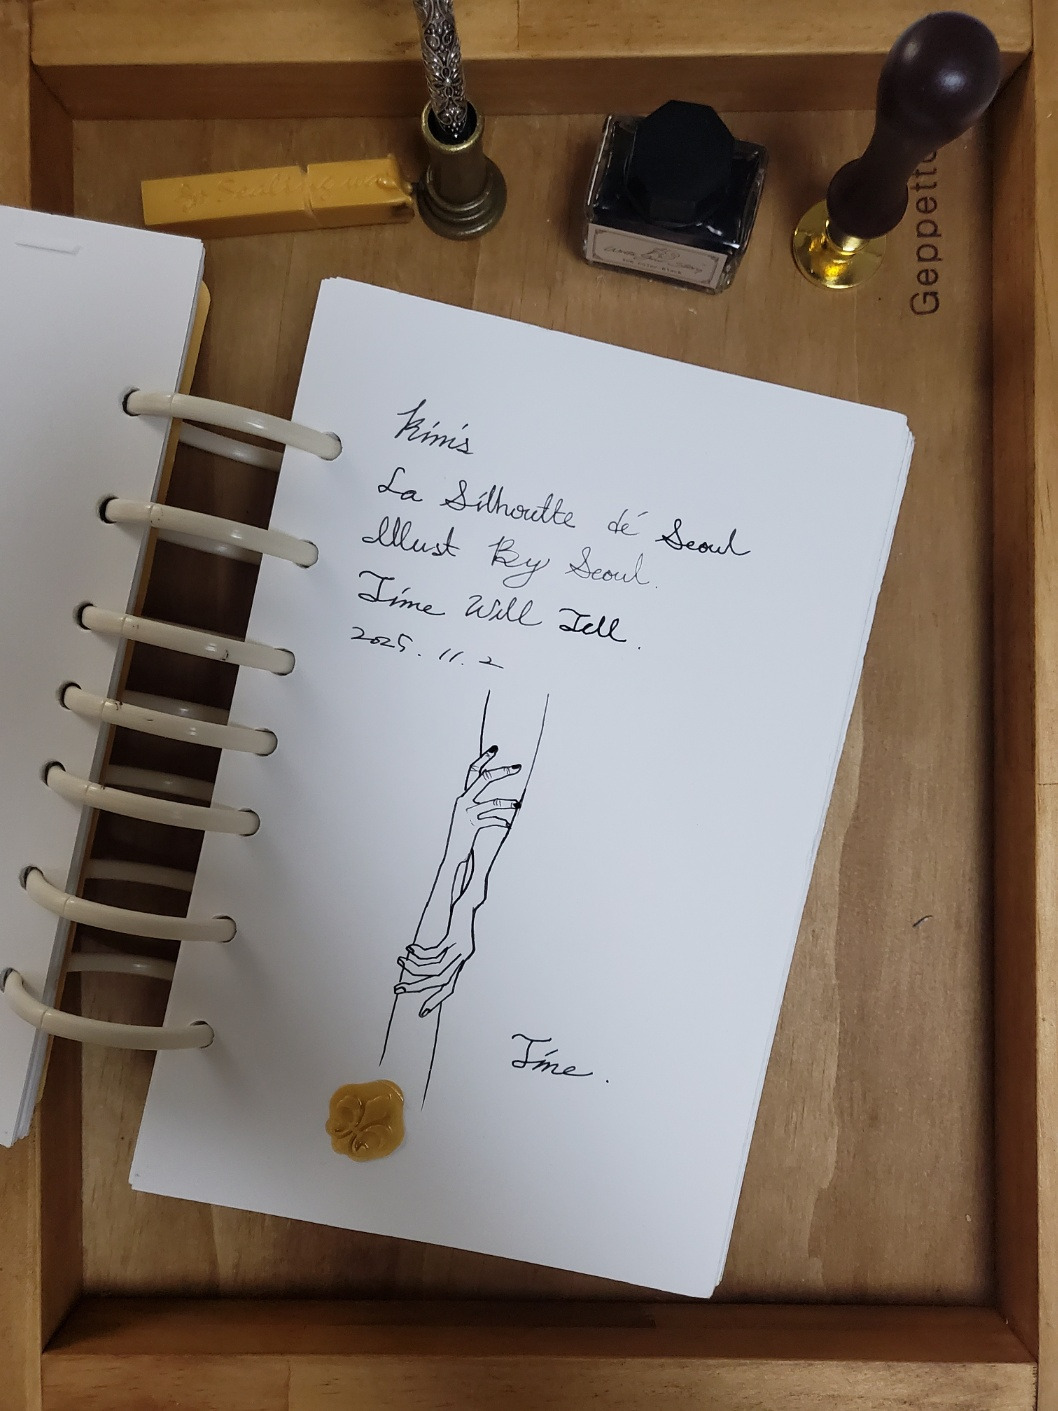 Geppetto
Kim's
La Silhoutte dé Seoul
Illust By Seoul.
Time Will Tell.
2025. 11. 2
Time.